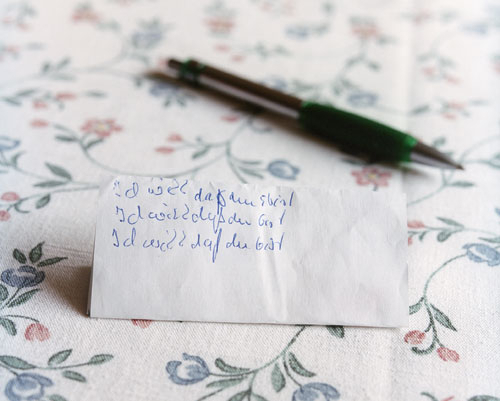 Ich will daß du
Ich will daß du bist
Ich will daß du bist